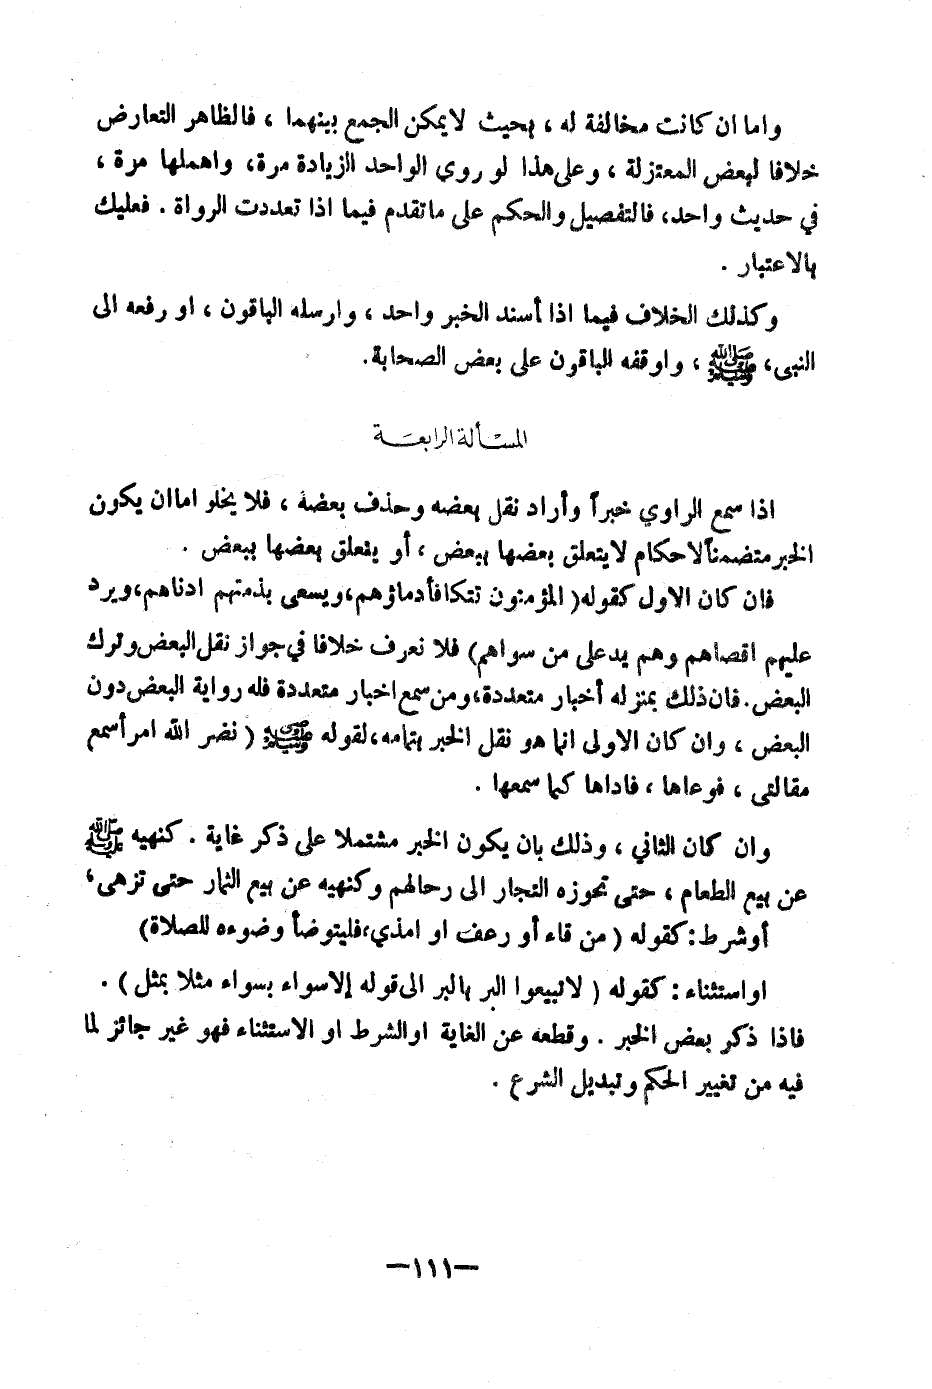 واما ان كانت مخالفة له ، بحيث لايمكن الجمع بينهما ، فالظاهر التعارض
خلافا لبعض المعتزلة ، وعلى هذا لو روي الواحد الزيادة مرة، واهملها مرة ،
في حديث واحد، فالتفصيل والحكم على ماتقدم فيما اذا تعددت الرواة . فعليك
بالاعتبار .
وكذلك الخلاف فيما اذا أسند الخبر واحد ، وارسله الباقون ، او رفعه الى
النبى، ﷺ ، واوقفه الباقون على بعض الصحابة.
المسألة الرابعة
اذا سمع الراوي خبراً وأراد نقل بعضه وحذف بعضه ، فلا يخلو اما ان يكون
الخبر متضمناً لاحكام لايتعلق بعضها ببعض ، أو يتعلق بعضها ببعض .
فان كان الاول كقوله( المؤمنون تتكافأ دماؤهم،ويسعى بذمتهم ادناهم،ويرد
عليهم اقصاهم وهم يد على من سواهم) فلا نعرف خلافا في جواز نقل البعض وترك
البعض. فان ذلك بمنزله أخبار متعددة،ومن سمع اخبار متعددة فله رواية البعض دون
البعض ، وان كان الاولى انما هو نقل الخبر بتمامه،لقوله ﷺ ( نضر الله امرأ سمع
مقالتى ، فوعاها ، فاداها كما سمعها .
وان كان الثاني ، وذلك بان يكون الخبر مشتملا على ذكر غاية . كنهيه ﷺ
عن بيع الطعام ، حتى تحوزه التجار الى رحالهم وكنهيه عن بيع الثمار حتى تزهى،
أو شرط: كقوله ( من قاء أو رعف او امذي،فليتوضأ وضوءه للصلاة)
او استثناء : كقوله ( لاتبيعوا البر بالبر الى قوله إلا سواء بسواء مثلا بمثل ) .
فاذا ذكر بعض الخبر . وقطعه عن الغاية او الشرط او الاستثناء فهو غير جائز لما
فيه من تغيير الحكم وتبديل الشرع .
—١١١—